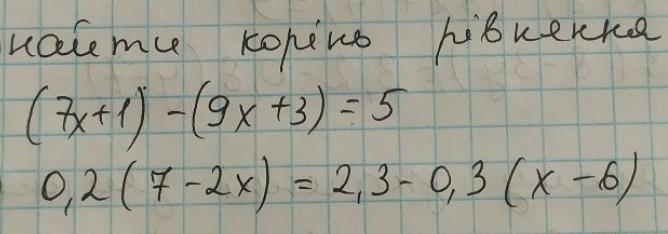 найти корінь рівняння
(7x+1)-(9x+3)=5
0,2(7-2x)=2,3-0,3(x-6)